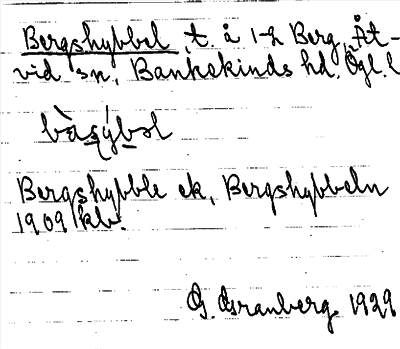 Bergshybbel, t. å 1-h Berg, Åt-
vid sn, Bankekinds hd. Ögl. l
Bergshybble ek, Bergshybbeln
1909 kb.
G. Granberg 1929